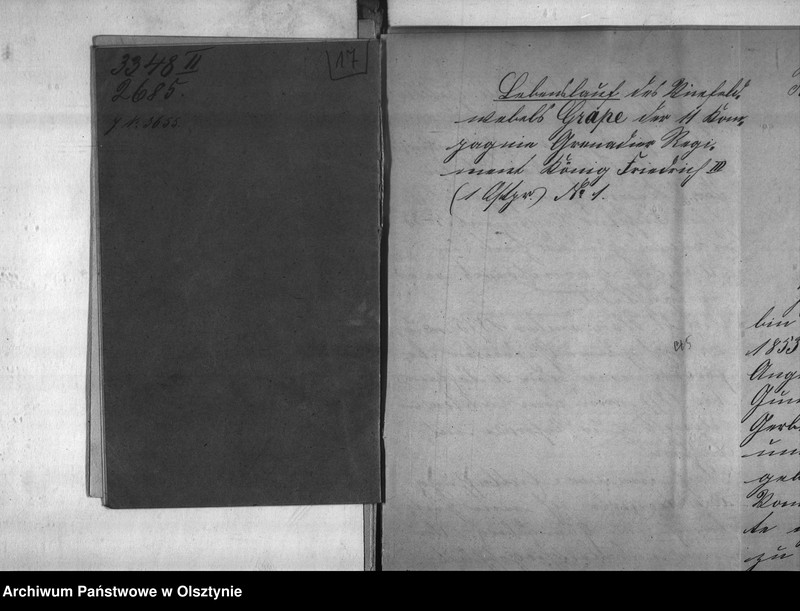 3348 II
2685.
17
Lebenslauf des Vizefeld-
webels Grápe der 11 Kom-
pagnie Grenadier Regi-
ment König Friedrich III
(1 Ostpr.) No 1.
bin
1853
Ang
Gum
Gerb
und
geb
Vom
te
zu
Archiwum Państwowe w Olsztynie